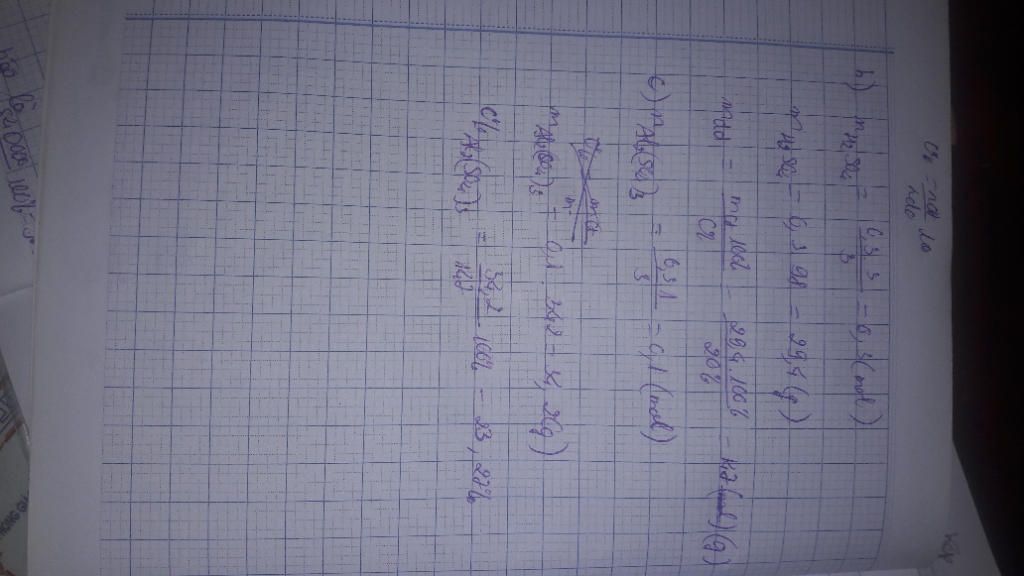 b) n H₂SO₄ = 0,3.3 / 3 = 0,3 (mol)
m H₂SO₄ = 0,3.98 = 29,4 (g)
m dd = mct.100% / C% = 29,4.100% / 20% = 147 (g)
c) n Al₂(SO₄)₃ = 0,3.1 / 3 = 0,1 (mol)
m Al₂(SO₄)₃ = 0,1 . 342 = 34,2 (g)
C% Al₂(SO₄)₃ = 34,2 / 147 . 100% = 23,27%